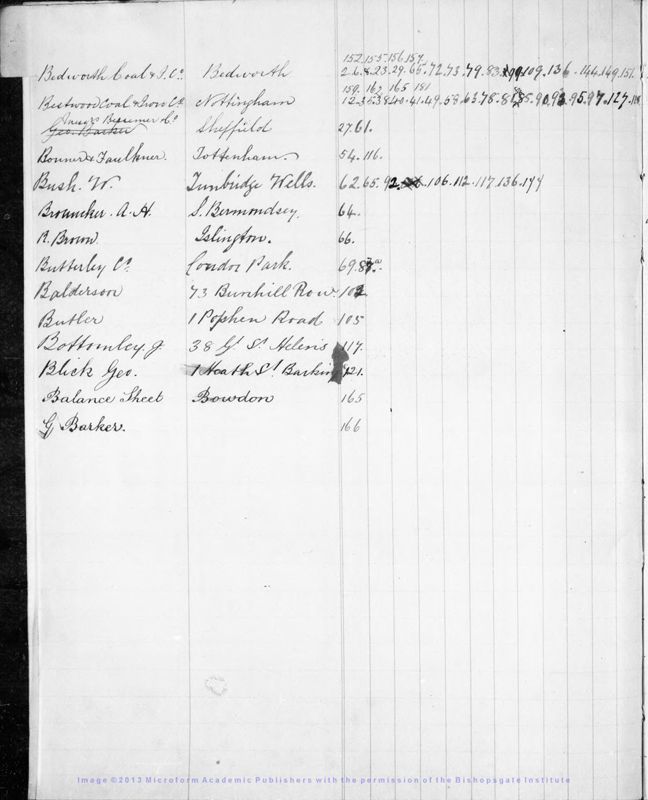 152.155.156.157.
Bedworth Coal & I. Co. Bedworth 2.6.8.23.29.65.72.73.79.83.99.109.136.144.149.151
159. 162 165 181
Bestwood Coal & Iron Co. Nottingham 12.35.38.40.41.49.58.63.78.81.85.90.93.95.97.127.
Bessemer Co.
Geo. Barker Sheffield 27.61.
Bonner & Faulkner. Tottenham. 54.116.
Bush. W. Tunbridge Wells. 62.65.92. 106.112.117.136.144
Brouncker. A. H. S. Bermondsey. 64.
R. Brown. Islington. 66.
Butterley Co. Condor Park. 69.
Balderson 73 Bunhill Row. 102
Butler 1 Pophen Road 105
Bottomley J. 38 Gt. St. Helens 117.
Blick Geo. 1 Heath St. Barking 121.
Balance Sheet Bowdon 165
G Barker. 166
Image ©2013 Microform Academic Publishers with the permission of the Bishopsgate Institute